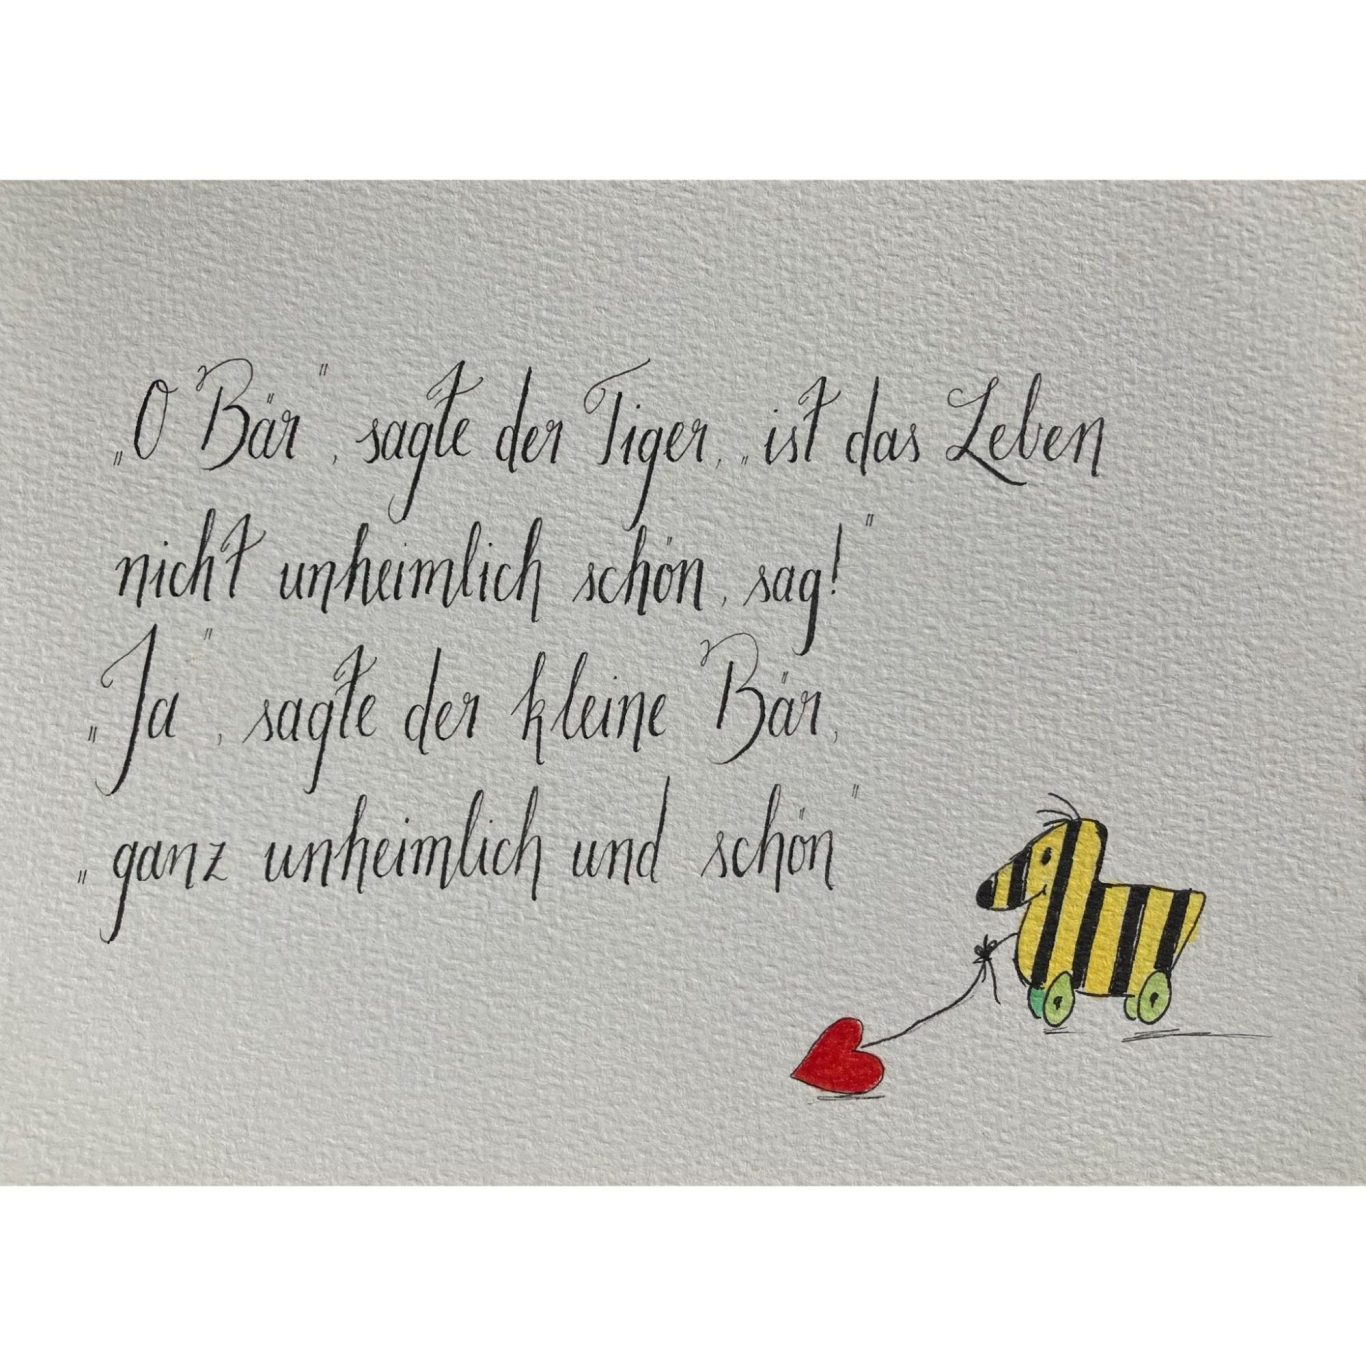 „O Bär", sagte der Tiger, „ist das Leben
nicht unheimlich schön, sag!"
„Ja", sagte der kleine Bär,
„ganz unheimlich und schön"